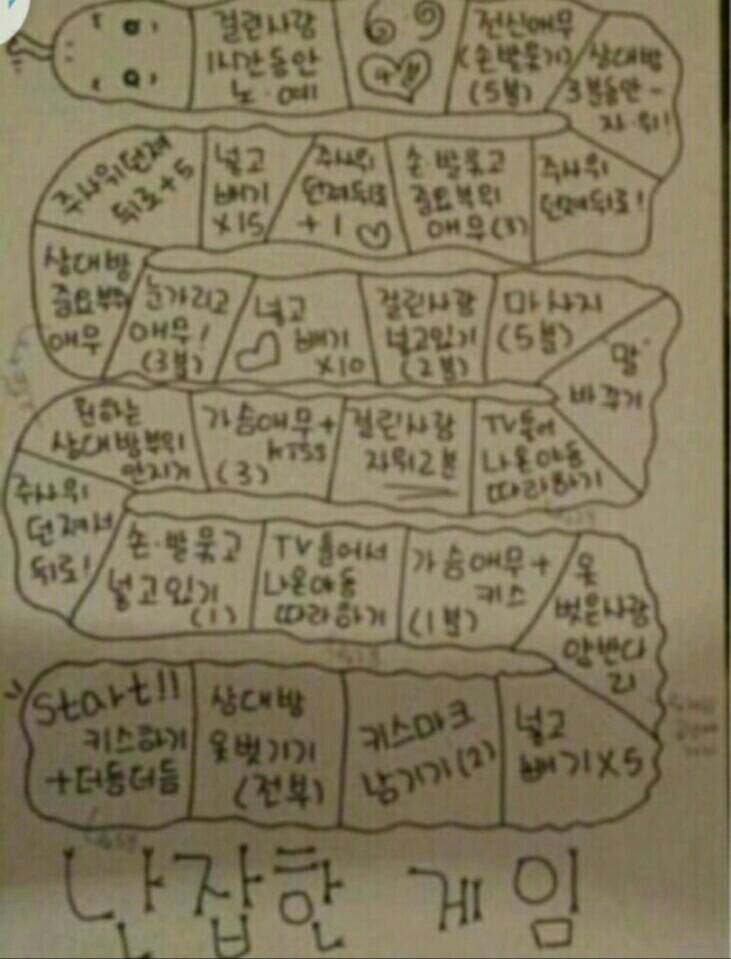 걸린사랑
1시간동안
노·예
69
전신애무
(손발묶기)
(5분)
상대방
3분동안-
자·위!
주사위던져
뒤로+5
넣고
빼기
X15
주사위
던져뒤로
+1♡
손·발묶고
중요부위
애무(3)
주사위
던져뒤로!
상대방
중요부위
애무
눈가리고
애무!
(3분)
넣고
♡ 빼기
X10
걸린사람
넣고있기
(2분)
마사지
(5분)
"말"
바꾸기
원하는
상대방부위
만지기
가슴애무+
kiss
(3)
걸린사람
자위2분
TV틀어
나온야동
따라하기
주사위
던져서
뒤로!
손·발묶고
넣고있기
(1)
TV틀어서
나온야동
따라하기
가슴애무+
키스
(1분)
옷
벗은사람
한반다
리
Start!!
키스하기
+더듬더듬
상대방
옷벗기기
(전부)
키스마크
남기기(2)
넣고
빼기X5
난잡한 게임